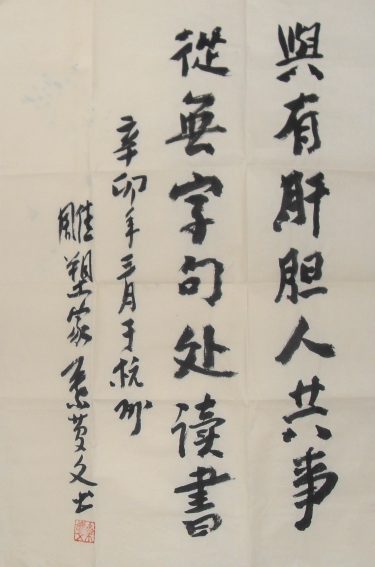 與有肝胆人共事
從無字句处读書
辛卯年三月于杭州
雕塑家 梦文书